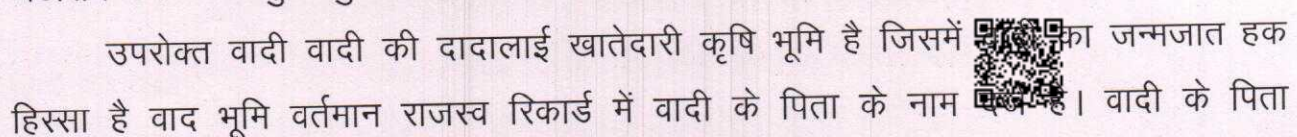 उपरोक्त वादी वादी की दादालाई खातेदारी कृषि भूमि है जिसमें का जन्मजात हक
हिस्सा है वाद भूमि वर्तमान राजस्व रिकार्ड में वादी के पिता के नाम है। वादी के पिता